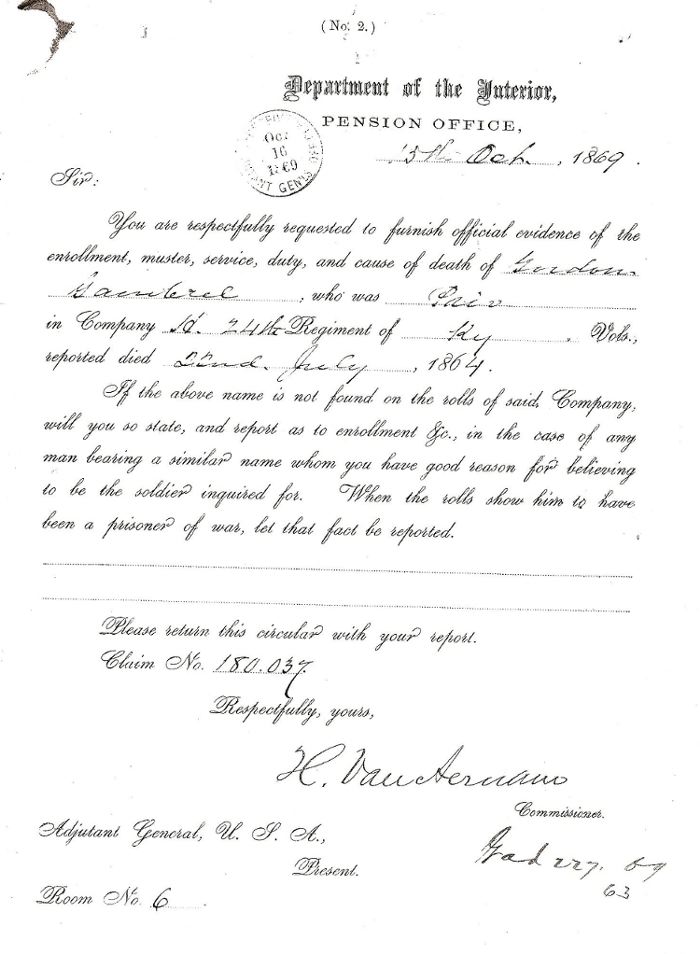 (No. 2.)
Department of the Interior,
PENSION OFFICE,
OCT
16
1869
ADJUTANT GENLS
15th Oct. , 1869.
Sir:
You are respectfully requested to furnish official evidence of the
enrollment, muster, service, duty, and cause of death of Gordon
Gambrel , who was Priv
in Company 24th Regiment of Ky . Vols.,
reported died 22nd. July , 1864.
If the above name is not found on the rolls of said Company,
will you so state, and report as to enrollment &c., in the case of any
man bearing a similar name whom you have good reason for believing
to be the soldier inquired for. When the rolls show him to have
been a prisoner of war, let that fact be reported.
Please return this circular with your report.
Claim No. 180.037
Respectfully, yours,
H. Van Aernam
Commissioner.
Adjutant General, U. S. A.,
Present.
69
63
Room No. 6